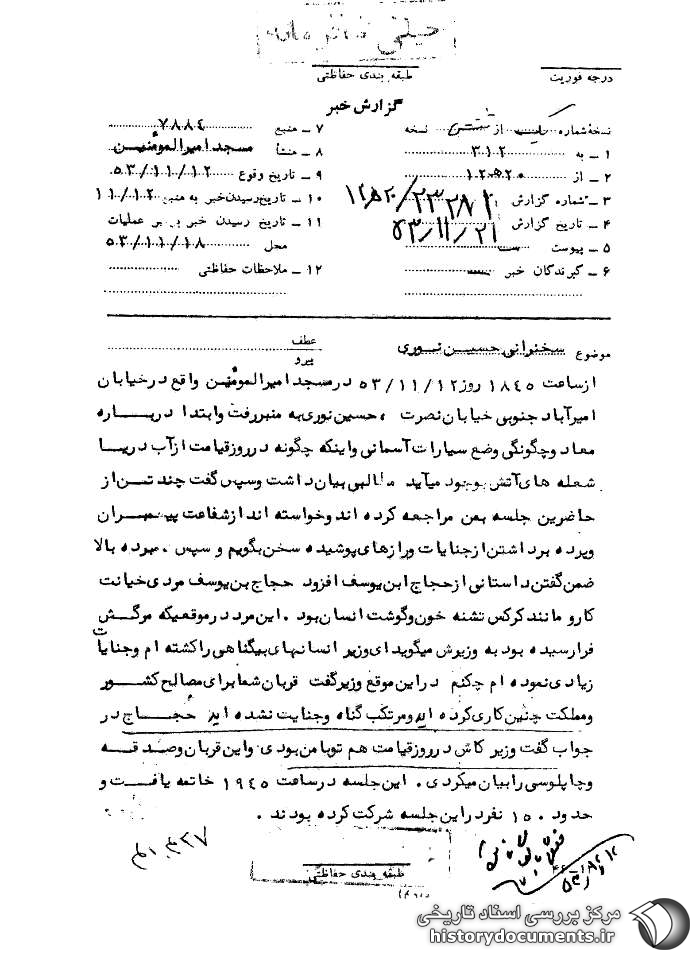 خیلی محرمانه
طبقه بندی حفاظتی
درجه فوریت
گزارش خبر
نسخه شماره یک از نسخه
۱ ــ به ۳۱۲
۲ ــ از ۲۰ه۱۲
۳ ــ شماره گزارش
۴ ــ تاریخ گزارش ۵۳/۱۱/۲۱
۵ ــ پیوست
۶ ــ گیرندگان خبر
۷ ــ منبع ۷۸۸۴
۸ ــ منشأ مسجد امیرالمومنین
۹ ــ تاریخ وقوع ۵۳/۱۱/۱۲
۱۰ ــ تاریخ رسیدن خبر به منبع ۱۱/۱۲
۱۱ ــ تاریخ رسیدن خبر به رهبر عملیات
محل ۵۳/۱۱/۱۸
۱۲ ــ ملاحظات حفاظتی
موضوع سخنرانی حسین نوری
عطف
پیرو
از ساعت ۱۸۴۵ روز ۵۳/۱۱/۱۲ در مسجد امیرالمومنین واقع در خیابان
امیرآباد جنوبی خیابان نصرت ، حسین نوری به منبر رفت و ابتدا درباره
معاد و چگونگی وضع سیارات آسمانی و اینکه چگونه در روز قیامت از آب دریا
شعله های آتش بوجود میآید مطالبی بیان داشت و سپس گفت چند تن از
حاضرین جلسه بمن مراجعه کرده اند و خواسته اند از شفاعت پیغمبران
و پرده برداشتن از جنایات و رازهای پوشیده سخن بگویم و سپس ، مبرده بالا
ضمن گفتن داستانی از حجاج ابن یوسف افزود حجاج بن یوسف مردی خیانت
کار و مانند کرکس تشنه خون و گوشت انسان بود . این مرد در موقعیکه مرگش
فرارسیده بود به وزیرش میگوید ای وزیر انسانهای بیگناهی را کشته ام و جنایات
زیادی نموده ام چکنم در این موقع وزیر گفت قربان شما برای مصالح کشور
و مملکت چنین کاری کرده اید و مرتکب گناه و جنایت نشده اید حجاج در
جواب گفت وزیر کاش در روز قیامت هم تو با من بودی و این قربان و صدقه
و چاپلوسی را بیان میکردی . این جلسه در ساعت ۱۹۴۵ خاتمه یافت و
حدود ۱۵۰ نفر در این جلسه شرکت کرده بودند .
طبقه بندی حفاظتی
مرکز بررسی اسناد تاریخی
historydocuments.ir